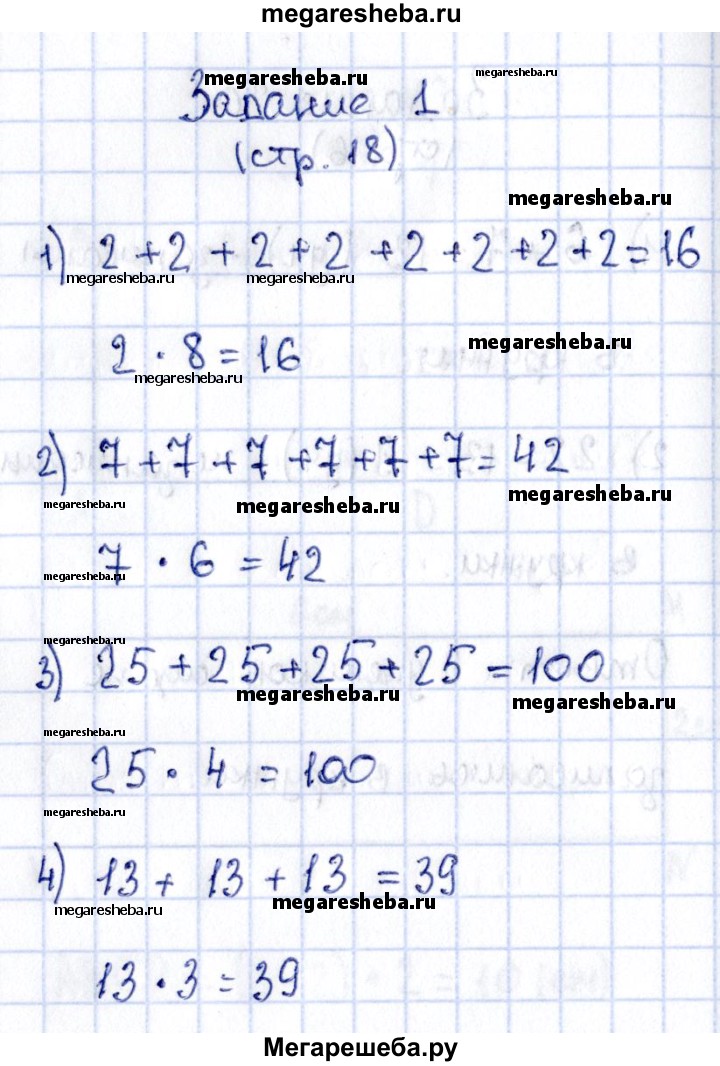 megaresheba.ru
megaresheba.ru
megaresheba.ru
Задание 1
(стр. 18)
megaresheba.ru
1) 2 + 2 + 2 + 2 + 2 + 2 + 2 + 2 = 16
megaresheba.ru megaresheba.ru
megaresheba.ru
2 · 8 = 16
megaresheba.ru
2) 7 + 7 + 7 + 7 + 7 + 7 = 42
megaresheba.ru megaresheba.ru megaresheba.ru
7 · 6 = 42
megaresheba.ru
megaresheba.ru
3) 25 + 25 + 25 + 25 = 100
megaresheba.ru megaresheba.ru
megaresheba.ru
25 · 4 = 100
megaresheba.ru
4) 13 + 13 + 13 = 39
megaresheba.ru megaresheba.ru
13 · 3 = 39
Мегарешеба.ру